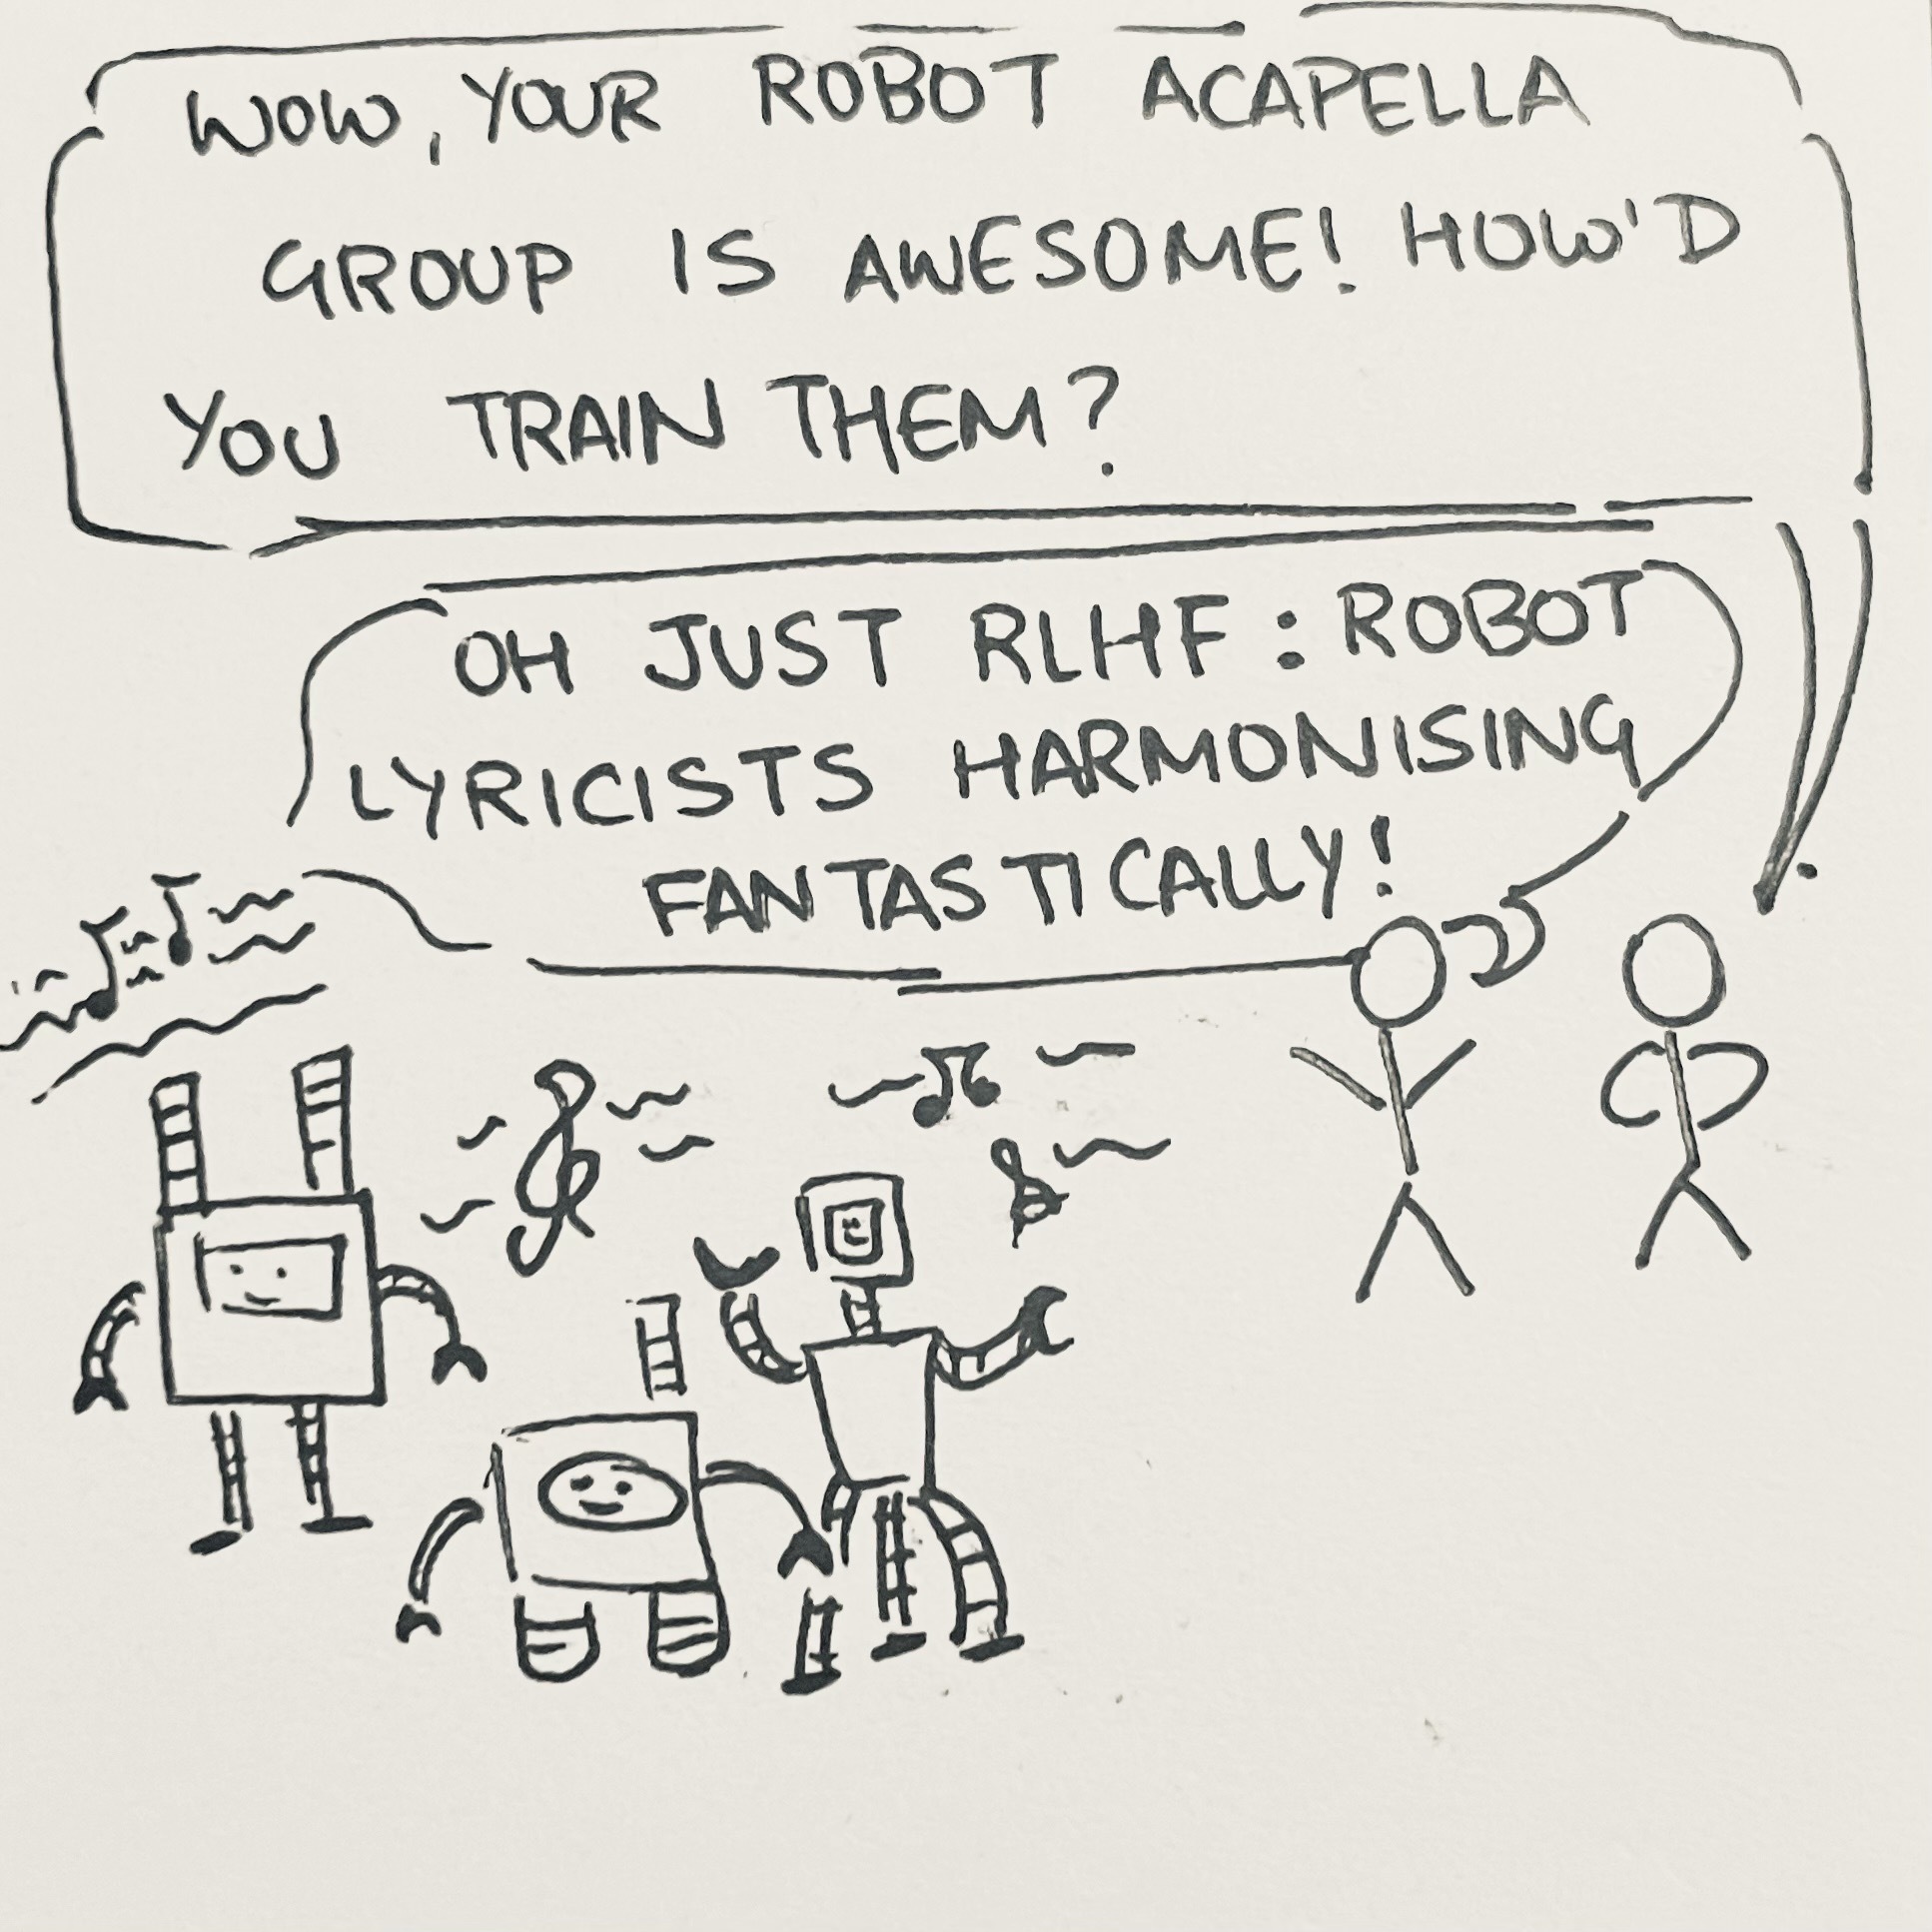 WOW, YOUR ROBOT ACAPELLA
GROUP IS AWESOME! HOW'D
YOU TRAIN THEM?
OH JUST RLHF: ROBOT
LYRICISTS HARMONISING
FANTASTICALLY!